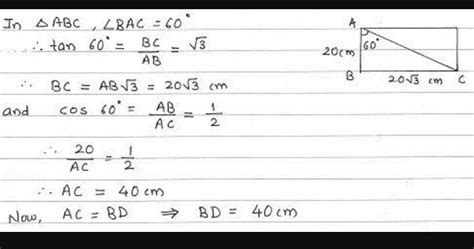 In △ABC, ∠BAC = 60°
∴ tan 60° = BC/AB = √3
∴ BC = AB√3 = 20√3 cm
and cos 60° = AB/AC = 1/2
∴ 20/AC = 1/2
∴ AC = 40 cm
Now, AC = BD ⇒ BD = 40 cm
A
60°
20cm
B
20√3 cm
C